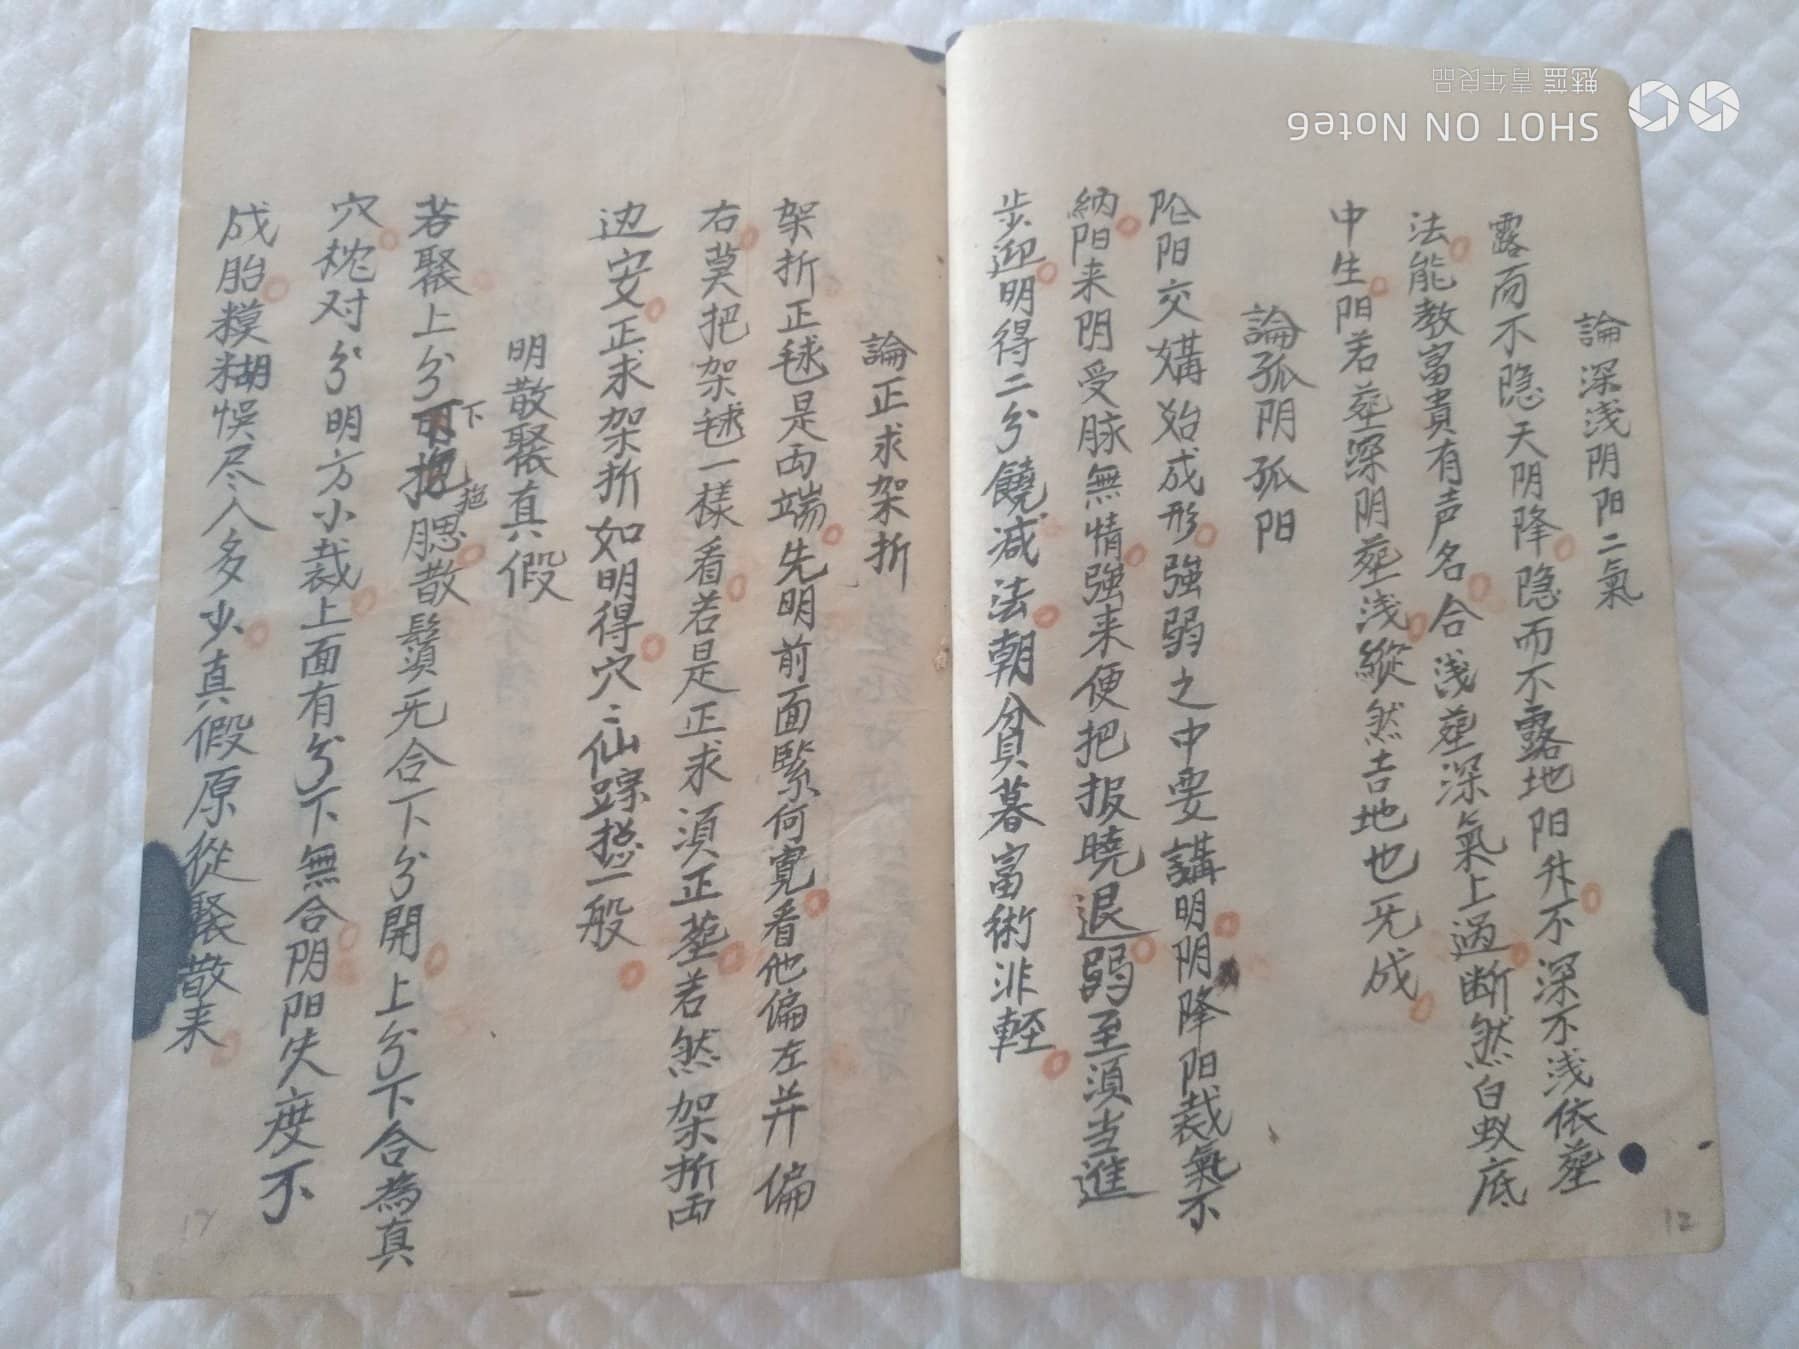 論深浅阴阳二氣
露而不隐天阴降隐而不露地阳升不深不浅依塟
法能教富貴有声名合浅塟深氣上過断然白蚁底
中生阳若塟深阴塟浅縱然吉地也旡成
論孤阴孤阳
阴阳交媾始成形強弱之中要講明阴降阳裁氣不
納阳来阴受脉無情強来便把报曉退弱至須当進
步迎明得二分饒减法朝貧暮富術非軽
論正求架折
架折正毬是両端先明前面緊何寛看他偏左并偏
右莫把架毬一様看若是正求須正塟若然架折両
边安正求架折如明得穴〻仙踪捴一般
明散聚真假
若聚上分下拖腮散鬚旡合下分開上分下合為真
穴枕对分明方小裁上面有分下無合阴阳失度不
成胎糢糊悞尽人多少真假原從聚散来
12
17
SHOT ON Note6
魅蓝 青年良品